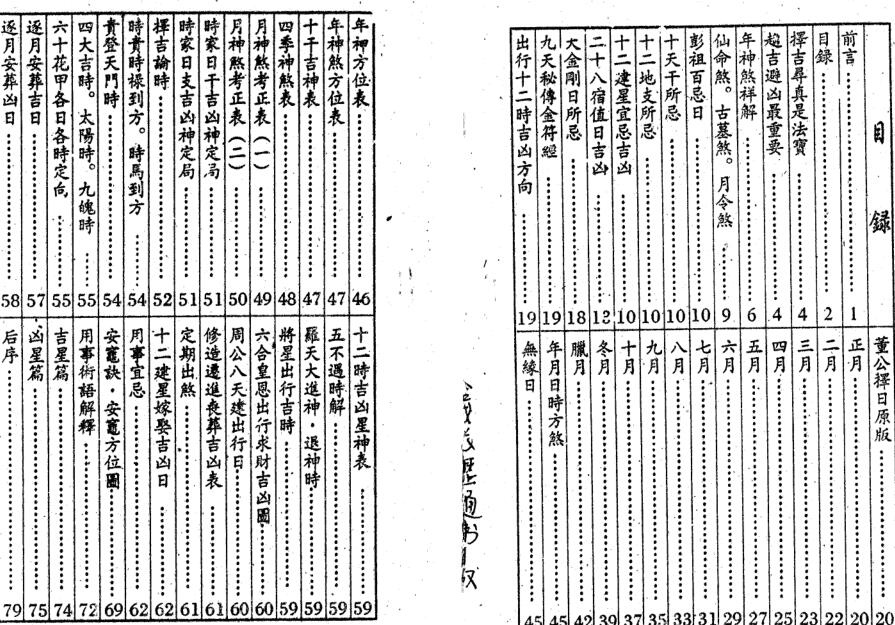 目錄
前言 1
目錄 2
擇吉尋真是法寶 4
趨吉避凶最重要 4
年神煞祥解 6
仙命煞。古墓煞。月令煞 9
彭祖百忌日 10
十天干所忌 10
十二地支所忌 10
十二建星宜忌吉凶 10
二十八宿值日吉凶 12
大金剛日所忌 18
九天秘傳金符經 19
出行十二時吉凶方向 19
董公擇日原版 20
正月 20
二月 22
三月 23
四月 25
五月 27
六月 29
七月 31
八月 33
九月 35
十月 37
冬月 39
臘月 42
年月日時方煞 45
無緣日 45
年神方位表 46
年神煞方位表 47
十干吉神表 47
四季神煞表 48
月神煞考正表(一) 49
月神煞考正表(二) 50
時家日干吉凶神定局 51
時家日支吉凶神定局 51
擇吉論時 52
時貴時祿到方。時馬到方 54
貴登天門時 54
四大吉時。太陽時。九醜時 55
六十花甲各日各時定向 55
逐月安葬吉日 57
逐月安葬凶日 58
十二時吉凶星神表 59
五不遇時解 59
羅天大進神。退神時 59
將星出行吉時 59
六合皇恩出行求財吉凶圖 60
周公八天建出行日 60
修造遷進喪葬吉凶表 61
定期出煞 61
十二建星嫁娶吉凶日 62
用事宜忌 62
安竈訣。安竈方位圖 69
用事術語解釋 72
吉星篇 74
凶星篇 75
后序 79
通